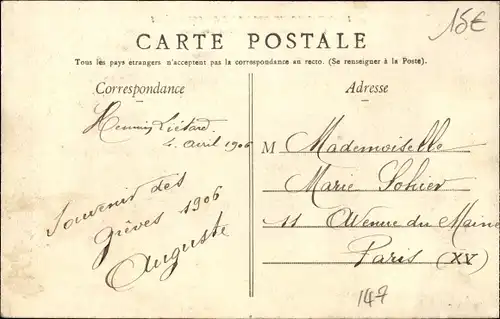 15€
CARTE POSTALE
Tous les pays étrangers n'acceptent pas la correspondance au recto. (Se renseigner à la Poste).
Correspondance
Liétard
4 avril 1906
Souvenir des
grèves 1906
Auguste
Adresse
M Mademoiselle
Marie Sohier
11 Avenue du Maine
Paris (XV)
147